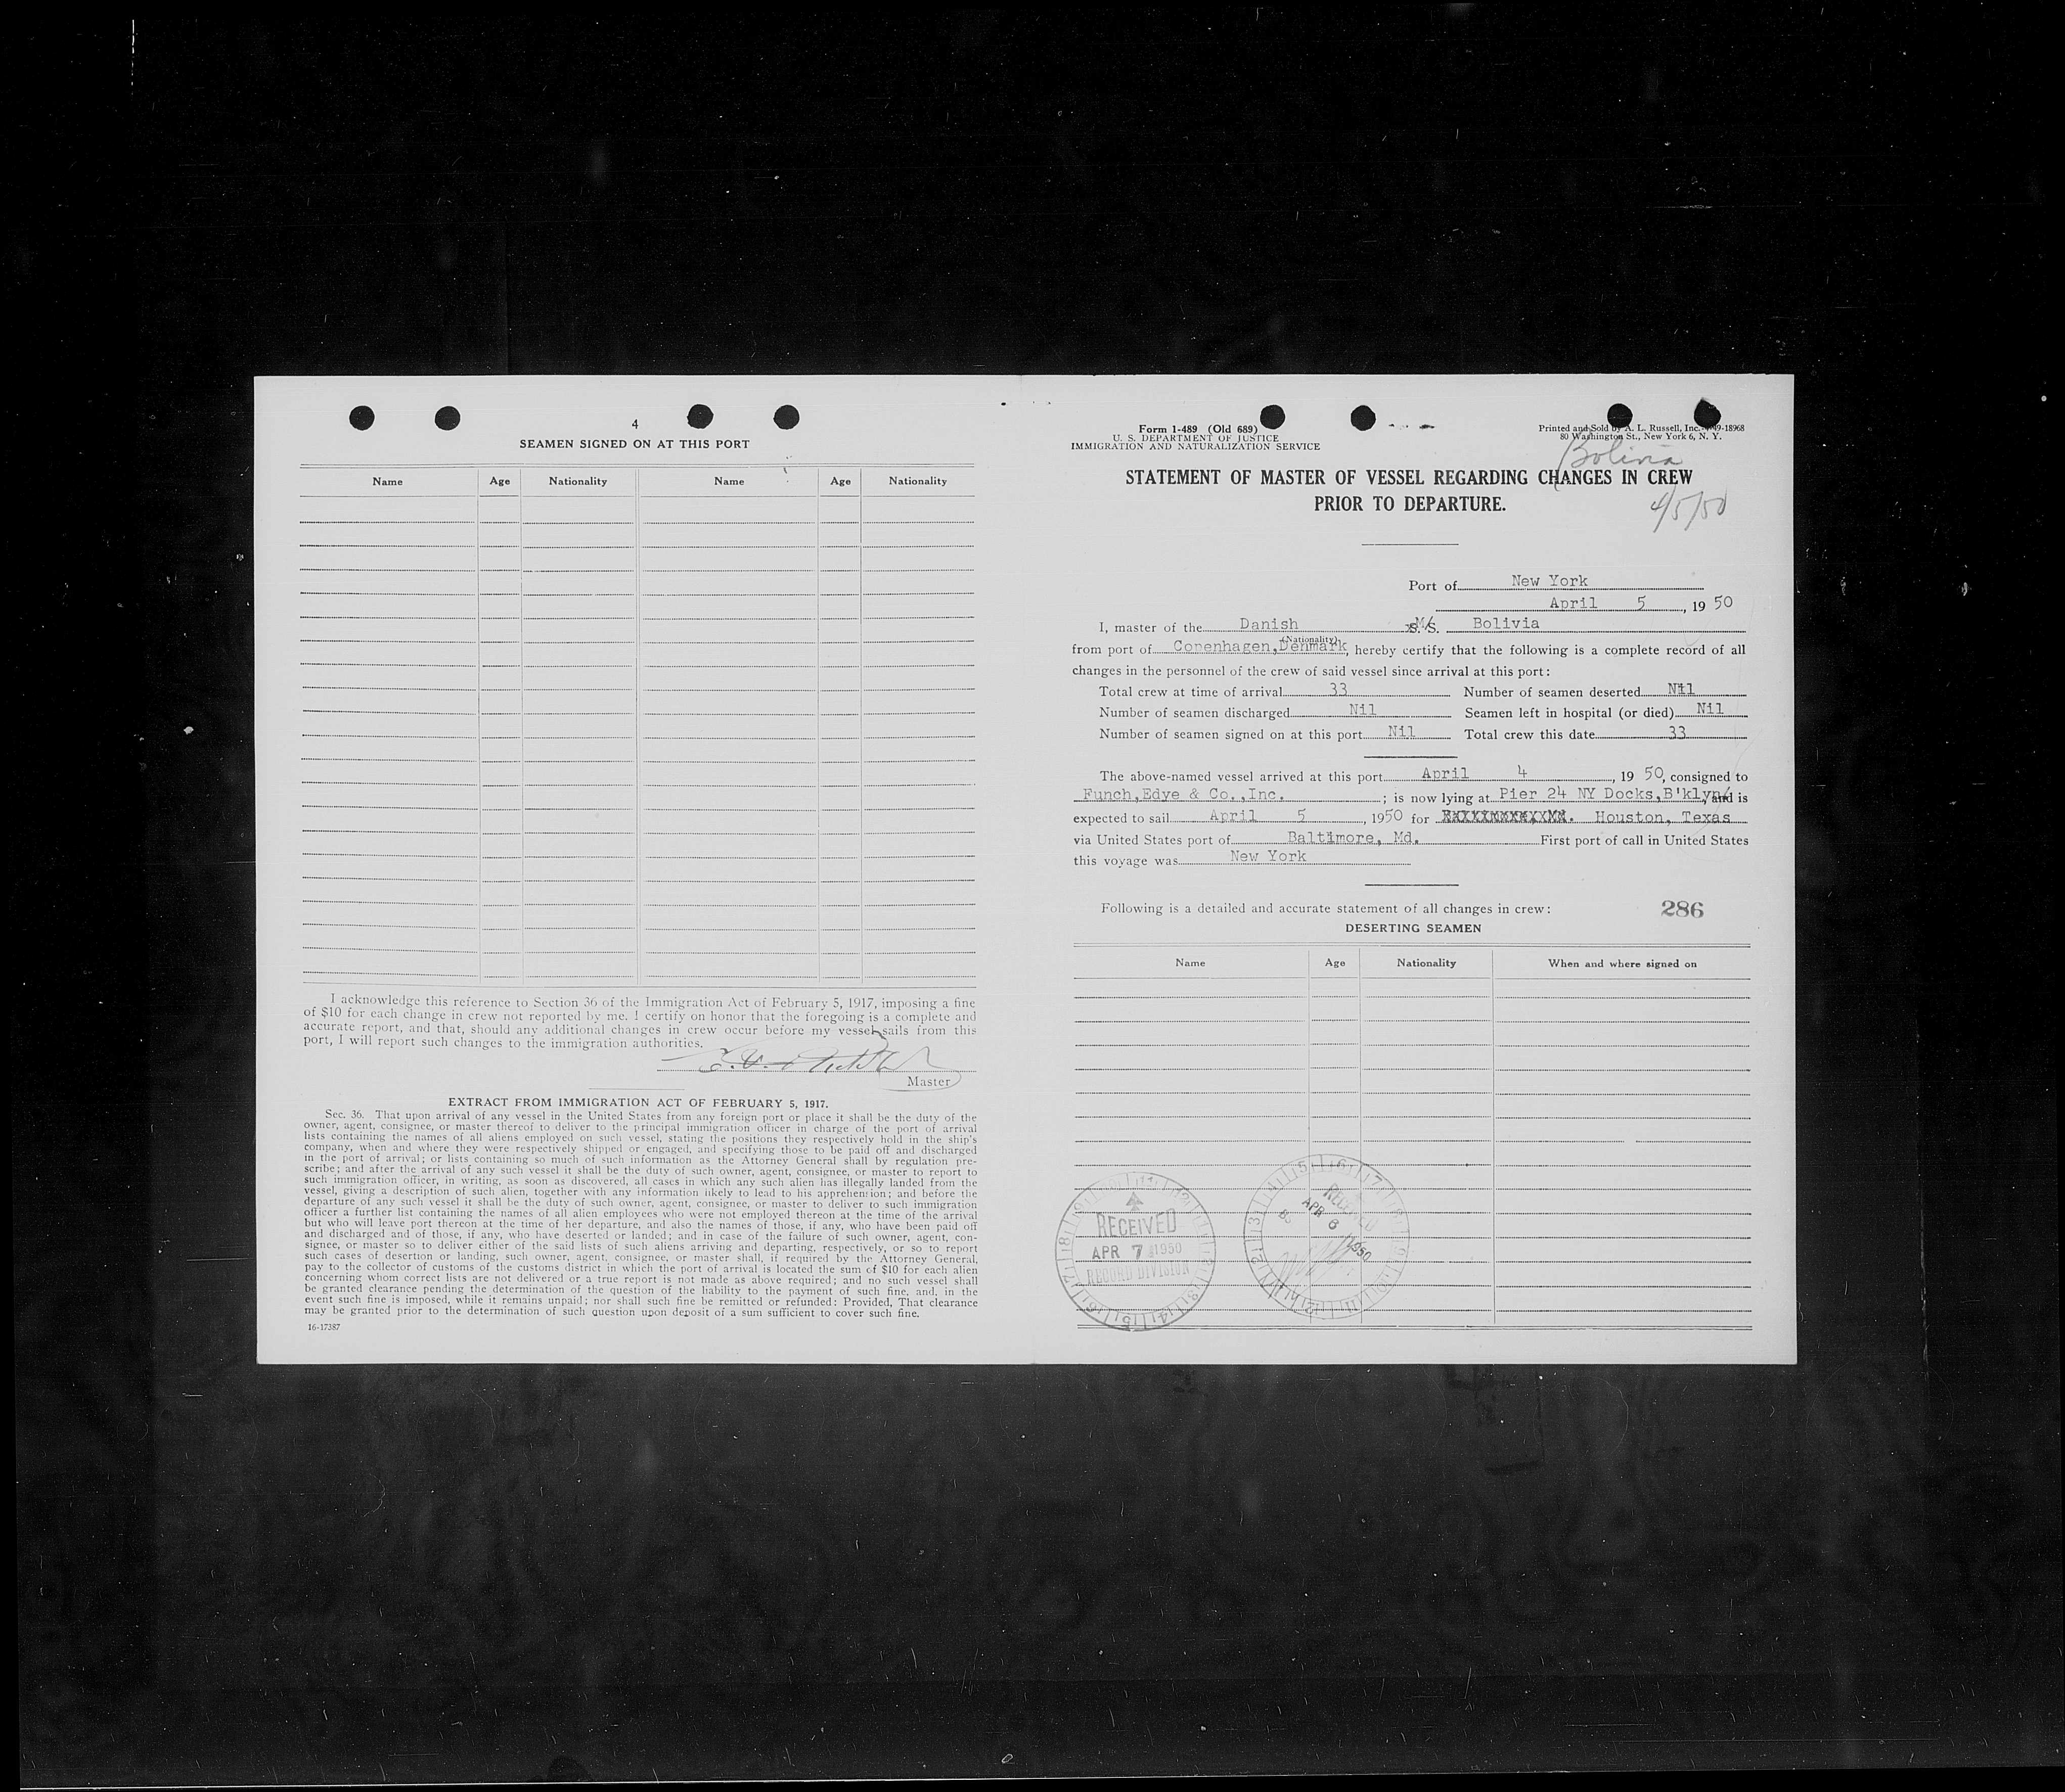 4
SEAMEN SIGNED ON AT THIS PORT
Name Age Nationality Name Age Nationality
I acknowledge this reference to Section 36 of the Immigration Act of February 5, 1917, imposing a fine
of $10 for each change in crew not reported by me. I certify on honor that the foregoing is a complete and
accurate report, and that, should any additional changes in crew occur before my vessel sails from this
port, I will report such changes to the immigration authorities.
Master
EXTRACT FROM IMMIGRATION ACT OF FEBRUARY 5, 1917.
Sec. 36. That upon arrival of any vessel in the United States from any foreign port or place it shall be the duty of the
owner, agent, consignee, or master thereof to deliver to the principal immigration officer in charge of the port of arrival
lists containing the names of all aliens employed on such vessel, stating the positions they respectively hold in the ship's
company, when and where they were respectively shipped or engaged, and specifying those to be paid off and discharged
in the port of arrival; or lists containing so much of such information as the Attorney General shall by regulation pre-
scribe; and after the arrival of any such vessel it shall be the duty of such owner, agent, consignee, or master to report to
such immigration officer, in writing, as soon as discovered, all cases in which any such alien has illegally landed from the
vessel, giving a description of such alien, together with any information likely to lead to his apprehension; and before the
departure of any such vessel it shall be the duty of such owner, agent, consignee, or master to deliver to such immigration
officer a further list containing the names of all alien employees who were not employed thereon at the time of the arrival
but who will leave port thereon at the time of her departure, and also the names of those, if any, who have been paid off
and discharged and of those, if any, who have deserted or landed; and in case of the failure of such owner, agent, con-
signee, or master so to deliver either of the said lists of such aliens arriving and departing, respectively, or so to report
such cases of desertion or landing, such owner, agent, consignee, or master shall, if required by the Attorney General,
pay to the collector of customs of the customs district in which the port of arrival is located the sum of $10 for each alien
concerning whom correct lists are not delivered or a true report is not made as above required; and no such vessel shall
be granted clearance pending the determination of the question of the liability to the payment of such fine, and, in the
event such fine is imposed, while it remains unpaid; nor shall such fine be remitted or refunded: Provided, That clearance
may be granted prior to the determination of such question upon deposit of a sum sufficient to cover such fine.
16-17387
Form 1-489 (Old 689)
U. S. DEPARTMENT OF JUSTICE
IMMIGRATION AND NATURALIZATION SERVICE
Printed and Sold by A. L. Russell, Inc.
80 Washington St., New York 6, N. Y.
Bolivia
STATEMENT OF MASTER OF VESSEL REGARDING CHANGES IN CREW
PRIOR TO DEPARTURE.
4/5/50
Port of New York
April 5, 19 50
I, master of the Danish M/S. Bolivia
(Nationality)
from port of Copenhagen, Denmark, hereby certify that the following is a complete record of all
changes in the personnel of the crew of said vessel since arrival at this port:
Total crew at time of arrival 33 Number of seamen deserted Nil
Number of seamen discharged Nil Seamen left in hospital (or died) Nil
Number of seamen signed on at this port Nil Total crew this date 33
The above-named vessel arrived at this port April 4, 19 50, consigned to
Funch, Edye & Co., Inc.; is now lying at Pier 24 NY Docks, B'klyn, and is
expected to sail April 5, 1950 for Houston, Texas
via United States port of Baltimore, Md. First port of call in United States
this voyage was New York
Following is a detailed and accurate statement of all changes in crew: 286
DESERTING SEAMEN
Name Age Nationality When and where signed on
RECEIVED
APR 7 1950
RECORD DIVISION
RECEIVED
APR 6 1950